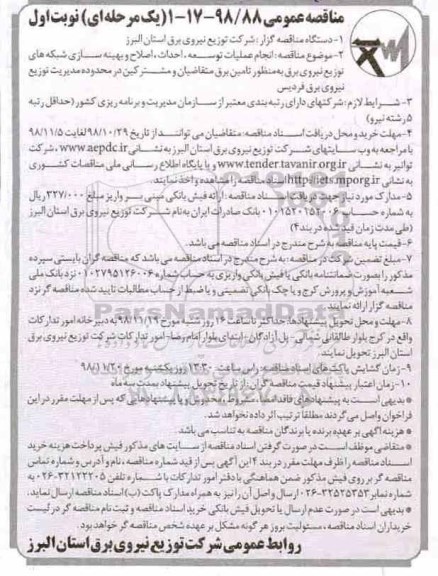 مناقصه عمومی ۹۸/۸۸-۱۷-۱ (یک مرحله ای) نوبت اول
۱- دستگاه مناقصه گزار : شرکت توزیع نیروی برق استان البرز
۲- موضوع مناقصه : انجام عملیات توسعه ، احداث ، اصلاح و بهینه سازی شبکه های
توزیع نیروی برق به منظور تامین برق متقاضیان و مشترکین در محدوده مدیریت توزیع
نیروی برق فردیس
۳- شرایط لازم : شرکتهای دارای رتبه بندی معتبر از سازمان مدیریت و برنامه ریزی کشور (حداقل رتبه
۵ رشته نیرو)
۴- مهلت خرید و محل دریافت اسناد مناقصه : متقاضیان می توانند از تاریخ ۹۸/۱۰/۲۹ لغایت ۹۸/۱۱/۵
با مراجعه به وب سایتهای شرکت توزیع نیروی برق استان البرز به نشانی www.aepdc.ir ، شرکت
توانیر به نشانی www.tender.tavanir.org.ir و یا پایگاه اطلاع رسانی ملی مناقصات کشوری
به نشانی http:iets.mporg.ir اسناد مناقصه را مشاهده و اخذ نمایند.
۵- مدارک مورد نیاز جهت دریافت اسناد مناقصه : ارائه فیش بانکی مبنی بر واریز مبلغ ۳۲۷/۰۰۰ ریال
به شماره حساب ۰۱۰۱۵۲۰۱۵۲۰۰۶ بانک صادرات ایران به نام شرکت توزیع نیروی برق استان البرز
(طی مدت زمان قید شده در بند ۴)
۶- قیمت پایه مناقصه به شرح مندرج در اسناد مناقصه می باشد.
۷- مبلغ تضمین شرکت در مناقصه : به شرح مندرج در اسناد مناقصه می باشد که مناقصه گران بایستی سپرده
مذکور را بصورت ضمانتنامه بانکی یا فیش بانکی واریزی به حساب شماره ۰۱۰۲۷۹۵۱۲۶۰۰۶ نزد بانک ملی
شعبه آموزش و پرورش کرج و یا چک بانکی تضمینی و یا ضبط از حساب مطالبات تایید شده مناقصه گر نزد
مناقصه گزار ارائه نمایند.
۸- مهلت و محل تحویل پیشنهادها: حداکثر تا ساعت ۱۶ روز شنبه مورخ ۹۸/۱۱/۱۹ به دبیرخانه امور تدارکات
واقع در کرج بلوار طالقانی شمالی - پل آزادگان - ابتدای بلوار امام رضا - امور تدارکات شرکت توزیع نیروی برق
استان البرز تحویل نمایند.
۹- زمان گشایش پاکت های اسناد مناقصه: راس ساعت ۱۳:۳۰ روز یکشنبه مورخ ۹۸/۱۱/۲۰
۱۰- زمان اعتبار پیشنهاد قیمت مناقصه گران : از تاریخ تحویل پیشنهاد بمدت سه ماه
* بدیهی است به پیشنهادهای فاقد امضاء، مشروط، مخدوش و یا پیشنهادهایی که پس از مهلت مقرر در این
فراخوان واصل می گردند مطلقا ترتیب اثر داده نخواهد شد.
* هزینه آگهی بر عهده برنده یا برندگان مناقصه به تناسب می باشد.
* متقاضی موظف است در صورت گرفتن اسناد مناقصه از سایت های مذکور فیش پرداخت هزینه خرید
اسناد مناقصه را ظرف مهلت مقرر در بند ۴ این آگهی پس از قید شماره مناقصه ، نام و آدرس و شماره تماس
مناقصه گر بر روی فیش مذکور ضمن هماهنگی با دفتر امور تدارکات با شماره تلفن ۳۲۱۲۲۲۰۵-۰۲۶ به
شماره نمابر ۳۲۵۲۵۳۵۳-۰۲۶ ارسال و اصل آن را نیز به همراه مدارک پاکت (ب) اسناد مناقصه ارسال نماید.
* بدیهی است در صورت عدم ارسال یا تحویل فیش بانکی خرید اسناد مناقصه و ثبت نام مناقصه گر در لیست
خریداران اسناد مناقصه ، مسئولیت بروز هر گونه مشکل بر عهده شخص مناقصه گر خواهد بود.
روابط عمومی شرکت توزیع نیروی برق استان البرز